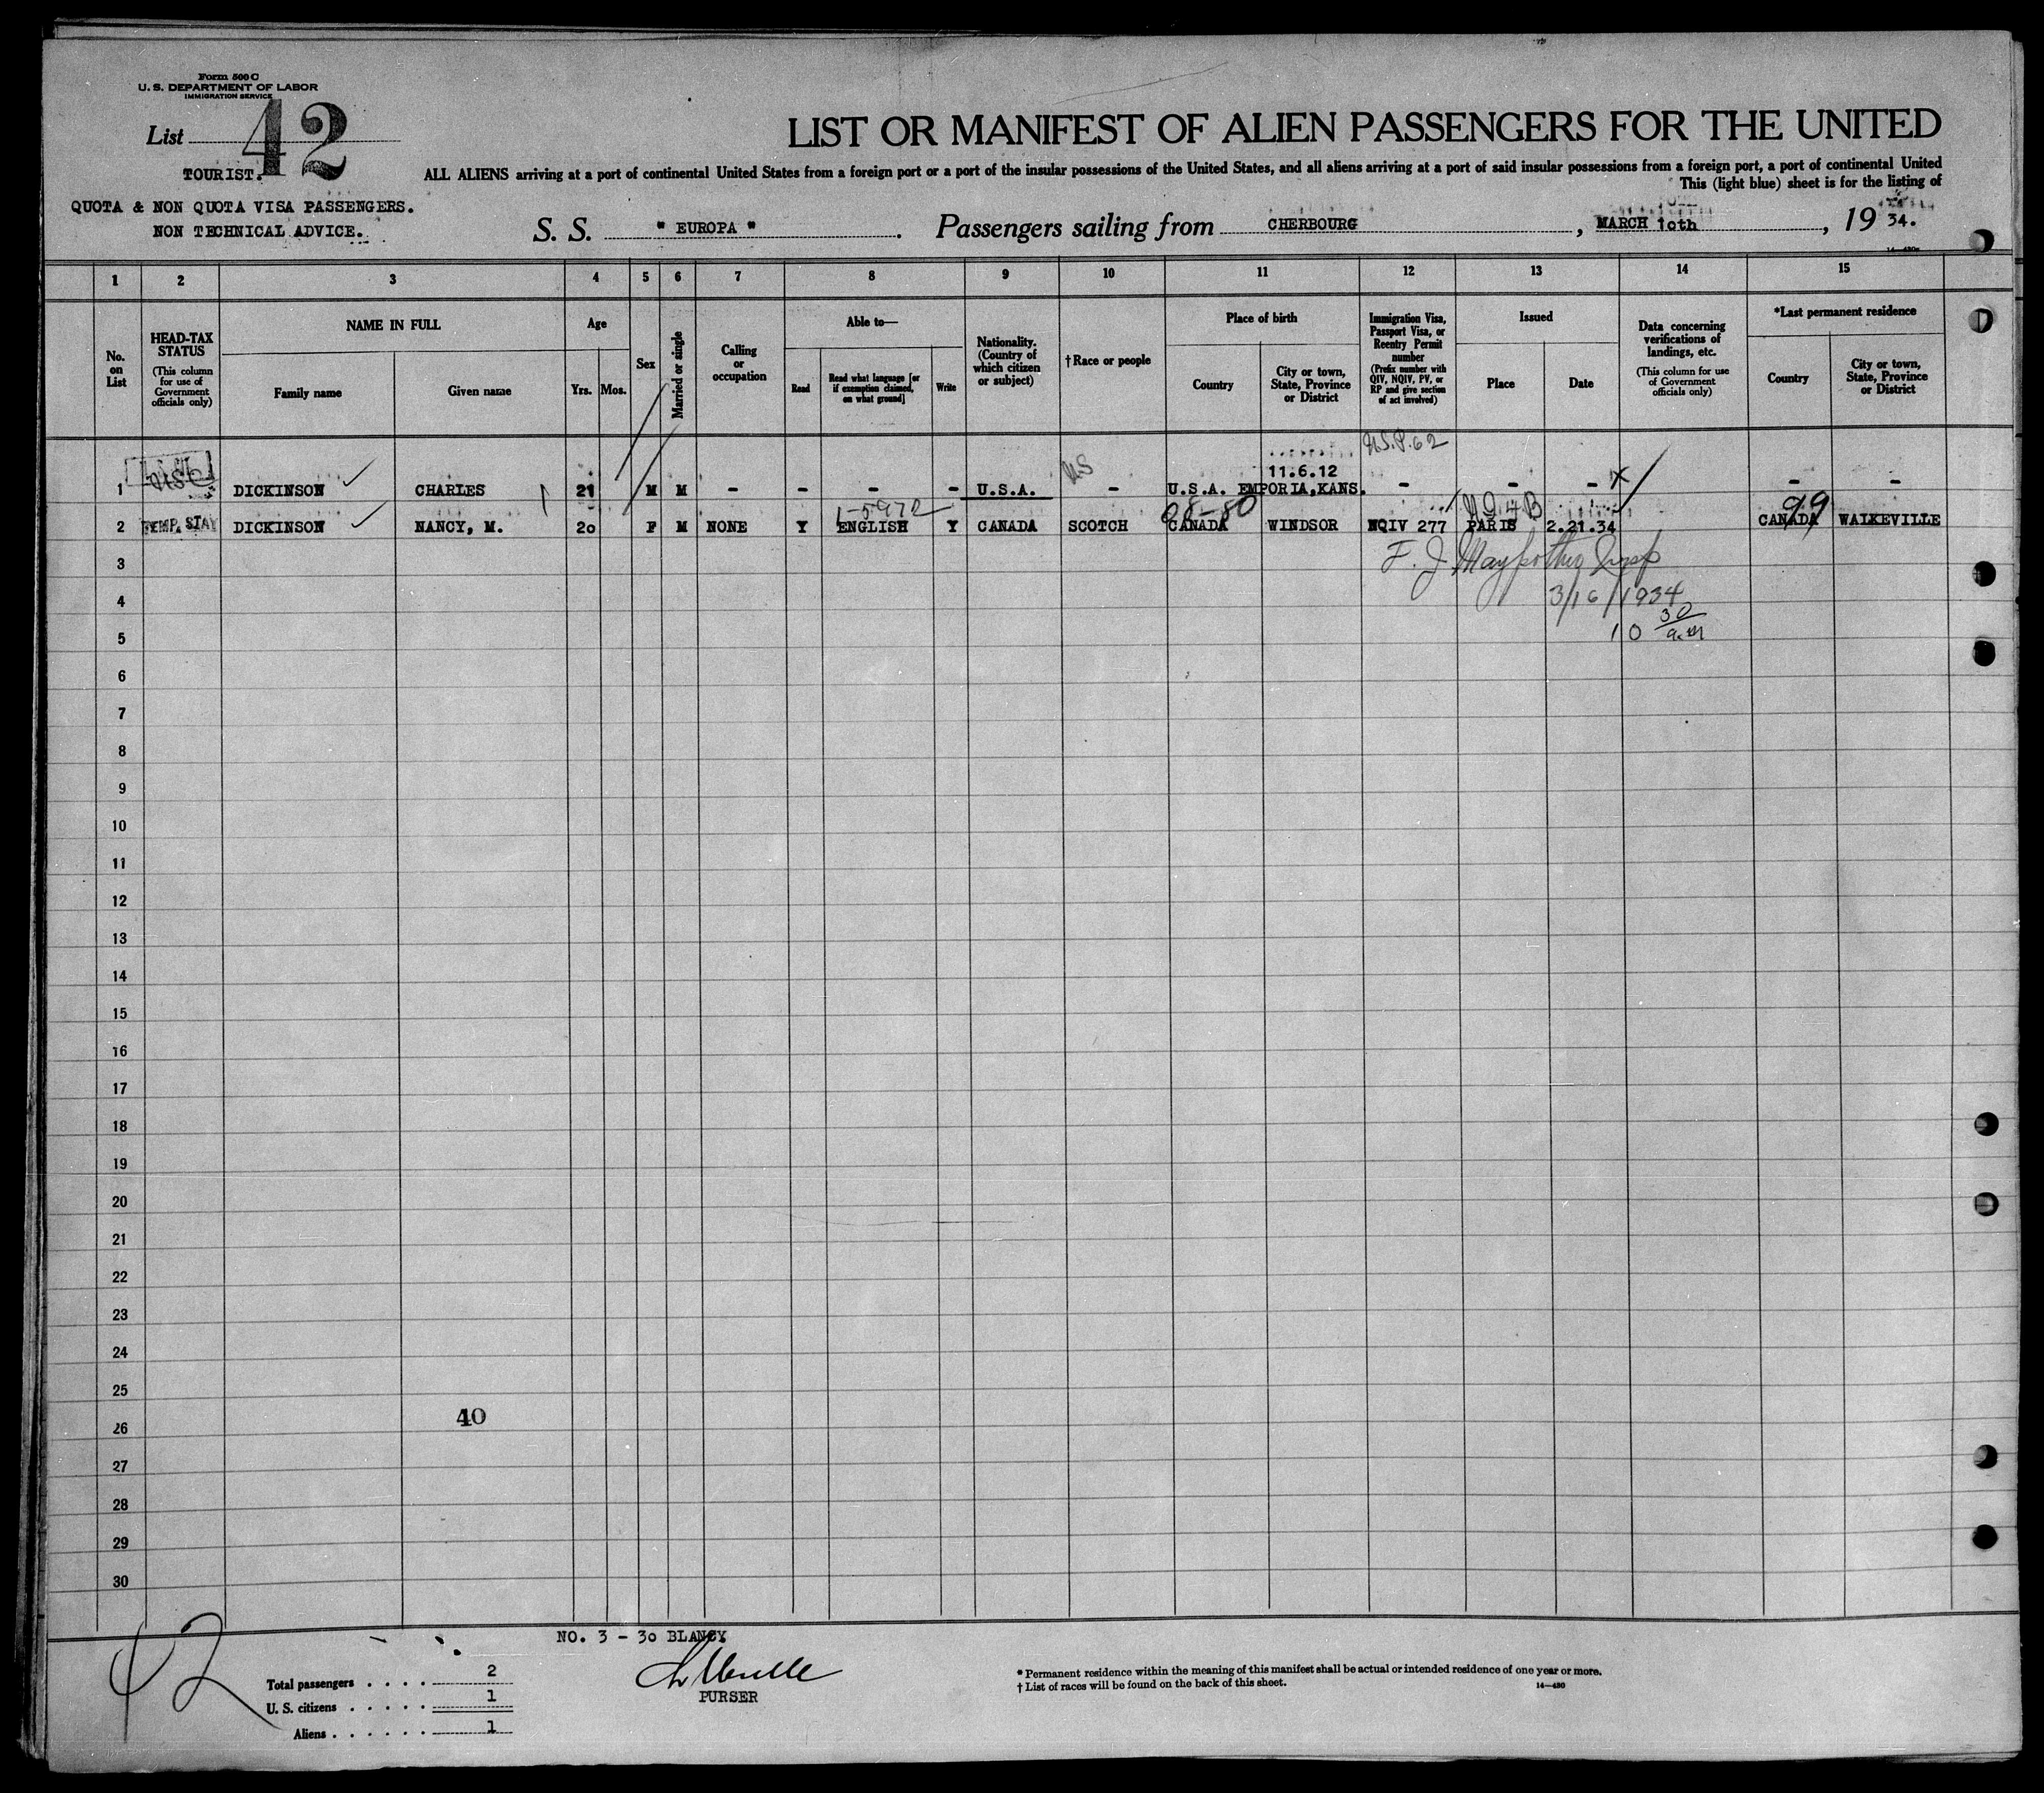 Form 500 C
U. S. DEPARTMENT OF LABOR
IMMIGRATION SERVICE
List 42
TOURIST.
QUOTA & NON QUOTA VISA PASSENGERS.
NON TECHNICAL ADVICE.
LIST OR MANIFEST OF ALIEN PASSENGERS FOR THE UNITED
ALL ALIENS arriving at a port of continental United States from a foreign port or a port of the insular possessions of the United States, and all aliens arriving at a port of said insular possessions from a foreign port, a port of continental United
This (light blue) sheet is for the listing of
S. S. " EUROPA ". Passengers sailing from CHERBOURG, MARCH 1oth, 19 34.
1 2 3 4 5 6 7 8 9 10 11 12 13 14 15
No. on List
HEAD-TAX STATUS
(This column for use of Government officials only)
NAME IN FULL
Family name
Given name
Age
Yrs. Mos.
Sex
Married or single
Calling or occupation
Able to—
Read
Read what language [or if exemption claimed, on what ground]
Write
Nationality. (Country of which citizen or subject)
†Race or people
Place of birth
Country
City or town, State, Province or District
Immigration Visa, Passport Visa, or Reentry Permit number
(Prefix number with QIV, NQIV, PV, or RP and give section of act involved)
Issued
Place
Date
Data concerning verifications of landings, etc.
(This column for use of Government officials only)
*Last permanent residence
Country
City or town, State, Province or District
U.S.P. 62
11.6.12
US
1 USC DICKINSON CHARLES 21 M M - - - - U.S.A. - U.S.A. EMPORIA,KANS. - - - - -
08-80
99
2 TEMP. STAY DICKINSON NANCY, M. 2o F M NONE Y ENGLISH Y CANADA SCOTCH CANADA WINDSOR NQIV 277 PARIS 2.21.34 CANADA WALKEVILLE
3
4 3/16/1934
5 10 30 a.m
6
7
8
9
10
11
12
13
14
15
16
17
18
19
20
21
22
23
24
25
40
26
27
28
29
30
42
NO. 3 - 3o BLANCY
Total passengers . . . . 2
U. S. citizens . . . . . 1
Aliens . . . . . . 1
PURSER
* Permanent residence within the meaning of this manifest shall be actual or intended residence of one year or more.
† List of races will be found on the back of this sheet.
14—430